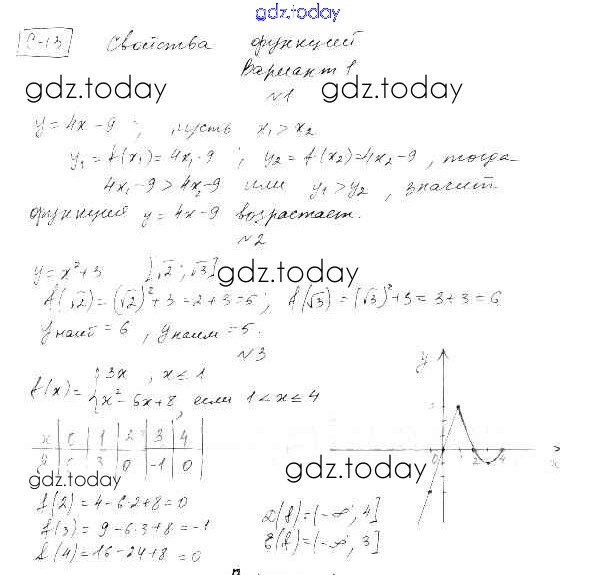 gdz.today
С-13 Свойства функций
Вариант 1
gdz.today gdz.today
№1
y = 4x - 9 ; пусть x₁ > x₂
y₁ = f(x₁) = 4x₁ - 9 ; y₂ = f(x₂) = 4x₂ - 9 , тогда
4x₁ - 9 > 4x₂ - 9 или y₁ > y₂ , значит
функция y = 4x - 9 возрастает.
№2
y = x² + 3 [√2 ; √3]
gdz.today
f(√2) = (√2)² + 3 = 2 + 3 = 5 ; f(√3) = (√3)² + 3 = 3 + 3 = 6
y наиб = 6 , y наим = 5.
№3
f(x) = { 3x , x ≤ 1
x² - 6x + 8 , если 1 < x ≤ 4
x | 0 | 1 | 2 | 3 | 4
y | 0 | 3 | 0 | -1 | 0
gdz.today gdz.today
f(2) = 4 - 6·2 + 8 = 0
f(3) = 9 - 6·3 + 8 = -1
f(4) = 16 - 24 + 8 = 0
D(f) = (-∞; 4]
E(f) = (-∞; 3]
y
x
0 2 4